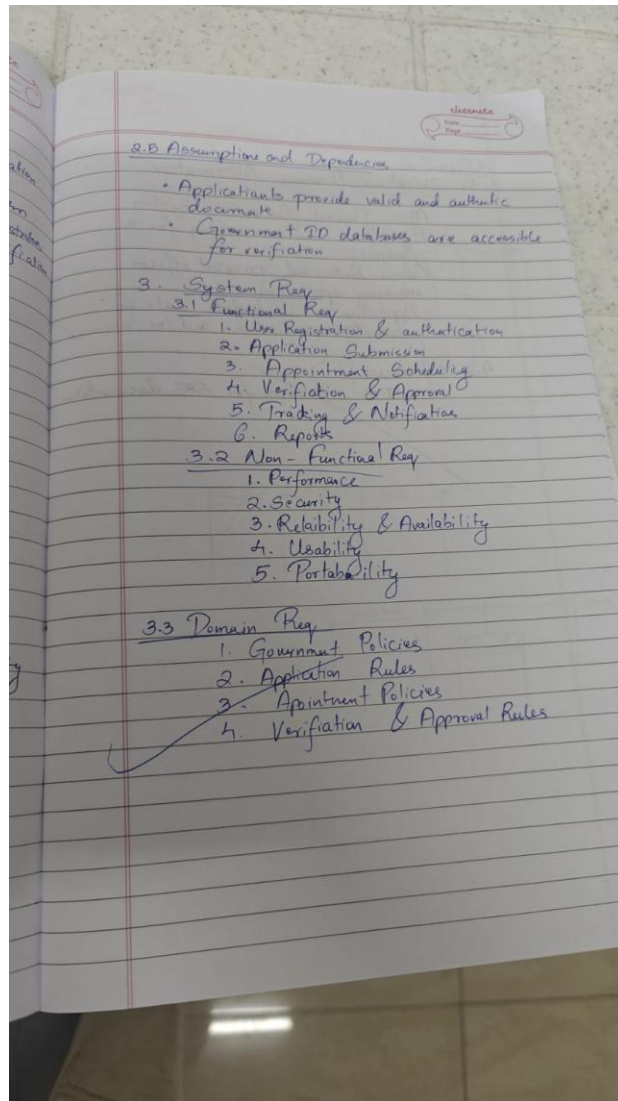 classmate
Date
Page
2.5 Assumptions and Dependencies
• Applicatiants provide valid and authentic
documate
• Government ID databases are accessible
for verifiation
3. System Req
3.1 Functional Req
1. User Registration & authatication
2. Application Submission
3. Appointment Scheduling
4. Verifiation & Approval
5. Tracking & Notifiation
6. Reports
3.2 Non-Functional Req
1. Performance
2. Security
3. Relaibility & Availability
4. Usability
5. Portability
3.3 Domain Req
1. Government Policies
2. Application Rules
3. Apointment Policies
4. Verifiation & Approval Rules